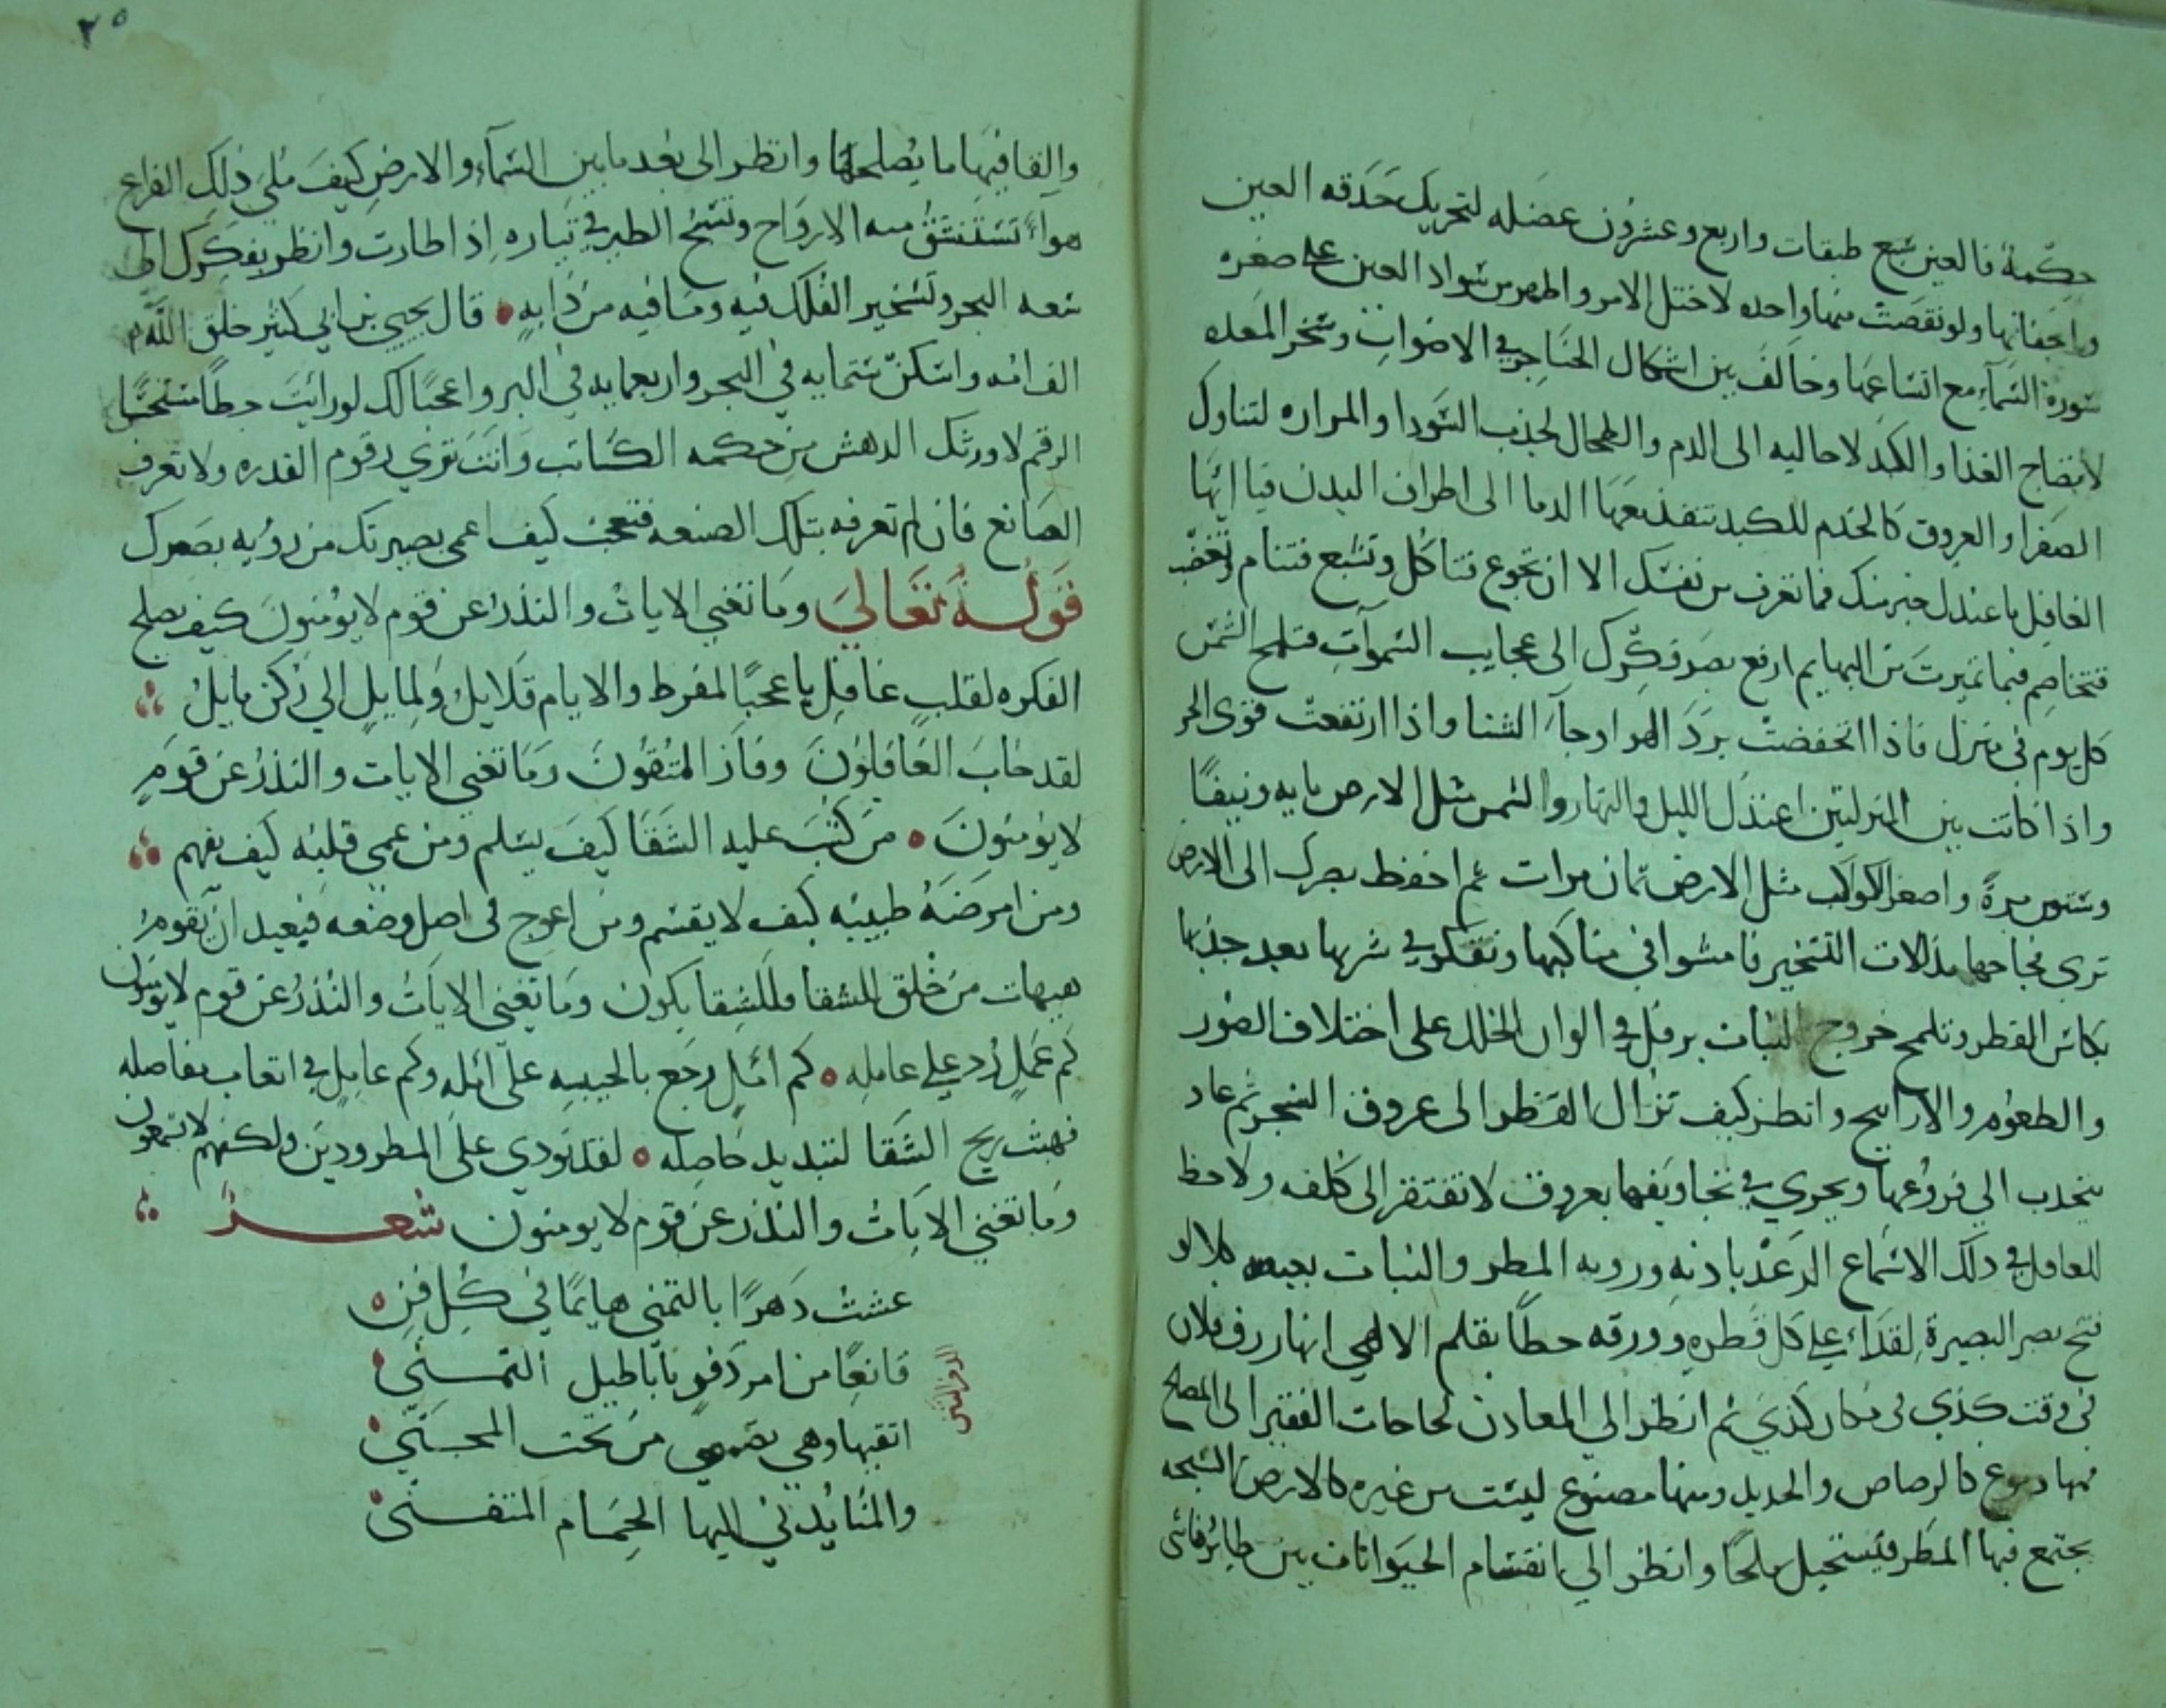 حكمة فالعين سبع طبقات واربع وعشرون عضله لتحريك حدقه العين
واجفانها ولو نقصت منها واحده لاختل الامر واظهر من سواد العين على صغره
صورة السماء مع اتساعها وخالف بين اشكال الحناجر في الاصوات وسخر المعده
لانضاج الغذا والكبد لاحاليه الى الدم والطحال لجذب السودا والمراره لتناول
الصفرا والعروق كالخدم للكبد تنفذ معها الدما الى اطراف البدن فيا ايها
الغافل ما عندك خبر منك فما تعرف من نفسك الا ان تجوع فتاكل وتشبع فتنام وتغضب
فتخاصم فبما تميرت من البهايم ارفع بصر فكرك الى عجايب السموات فتلمح الشمس
كل يوم في منزل فاذا انخفضت برد الهوا وجا الشتا واذا ارتفعت قوى الحر
واذا كانت بين المنزلتين اعتدل الليل والنهار والشمس مثل الارض مايه ونيفا
وستون مرة واصغر الكواكب مثل الارض ثمان مرات ثم اخفظ بصرك الى الارض
ترى فجاجها مذللات للتسخير فامشوا في مناكبها وتفكر في شربها بعد جذبها
بكاس القطر وتلمح خروج النبات يرفل في الوان الحلل على اختلاف الصور
والطعوم والاراييح وانظر كيف نزال القطر الى عروق الشجر ثم عاد
ينجذب الي فروعها ويجري في تجاويفها بعروق لا تفتقر الى كلفه ولاحظ
للغافل في ذلك الا سماع الرعد باذنه ورويه المطر والنبات بعينه كلا لو
فتح بصر البصيرة لقرا على كل قطره وورقه خطا بقلم الالهي انها رزق فلان
في وقت كذي في مكان كذي ثم انظر الي المعادن لحاجات الفقير الى المصالح
فمنها كالرصاص والحديد ومنها مصنوع ليست من غيره كالارض السبخه
يجتمع فيها المطر فيستحيل ملحا وانظر الي انقسام الحيوانات بين طاير وماشي
٢٥
والقا فيها ما يصلحها وانظر الى بعد ما بين السماء والارض كيف ملي ذلك الفراغ
هواءً تستنشق منه الارواح وتسبح الطير في تياره اذا طارت وانظر بفكرك الى
سعه البحر وتسخير الفلك فيه وما فيه من دابه ۰ قال يحيي بن ابي كثير خلق الله
الف امه واسكن ستمايه في البحر واربعمايه في البر واعجبا لك لو رائت خطا مستحسنا
الرقم لادركك الدهش من حكمه الكاتب وانت ترى رقوم القدره ولا تعرف
الصانع فان لم تعرفه بتلك الصنعه فتعجب كيف اعمى بصيرتك من رويه بصرك
قوله تعالي وما تغني الايات والنذر عن قوم لا يؤمنون كيف يصلح
الفكره لقلب غافل يا عجبا لمفرط والايام قلايل ولمايل الي ركن مايل
لقد خاب الغافلون وفاز المتقون وما تغني الايات والنذر عن قوم
لا يومنون ۰ من كتب عليه الشقا كيف يسلم ومن عمي قلبه كيف يفهم
ومن امرضه طبيبه كيف لا يقسم ومن اعوج في اصل وضعه فبعيد ان يقوم
هيهات من خلق للشقا فللشقا يكون وما تغني الايات والنذر عن قوم لا يومنون
كم عمل رد علي عامله ۰ كم امل رجع بالخيبيه على امله وكم عامل في اتعاب مفاصله
فهبت ريح الشقا لتبديد حاصله ۰ لقد نودي على المطرودين ولكنهم لا يسمعون
وما تغني الايات والنذر عن قوم لا يومنون شعر
عشت دهرا بالتمني هايما في كل فن
قانعا من امر دفر باباطيل التمني
اتقيها وهي من تحت المجن
والمنا يدني اليها الحمام المتفني